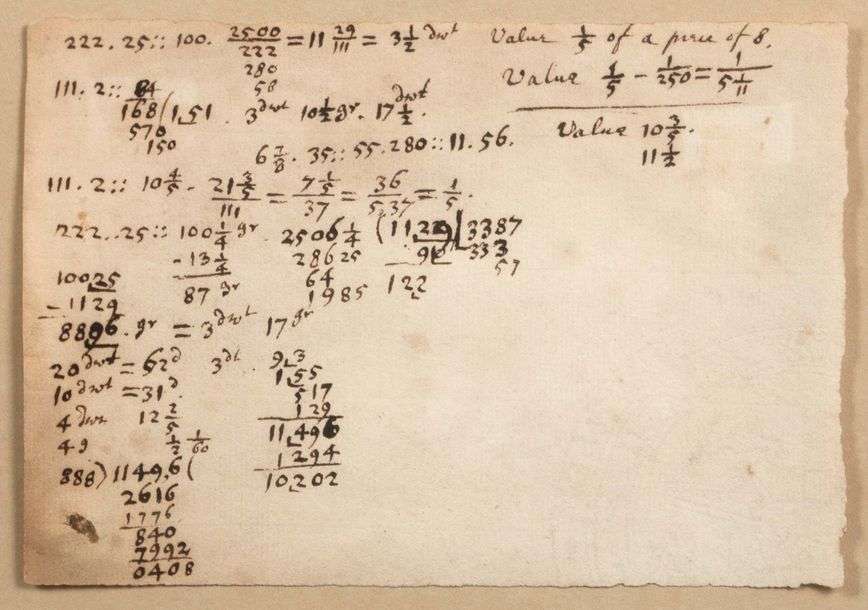 222 . 25 :: 100 . 2500/222 = 11 29/111 = 3 1/2 dwt
280
58
Value 1/5 of a piece of 8.
Value 1/5 - 1/250 = 1/(5 1/11)
111 . 2 :: 84
168 (1,51 . 3 dwt 10 1/2 gr. 17 1/2 dwt.
570
150
Value 10 3/5.
11 1/2
6 7/8 . 35 :: 55 . 280 :: 11 . 56.
111 . 2 :: 10 4/5 - (21 3/5)/111 = (7 1/5)/37 = 36/5,37 = 1/5.
222 . 25 :: 100 1/4 gr. 2506 1/4 (11,29 3387
-13 1/4 28625 333
87 gr 64 122 57
1985
10025
-1129
8896 . gr = 3 dwt 17 gr
20 dwt = 62 d 3 dt. 9,3
10 dwt = 31 d. 1,55
4 dwt 12 2/5 517
4 g 1/2 1/60 129
11,496
1294
10,202
888) 1149,6 (
2616
1776
840
7992
0408